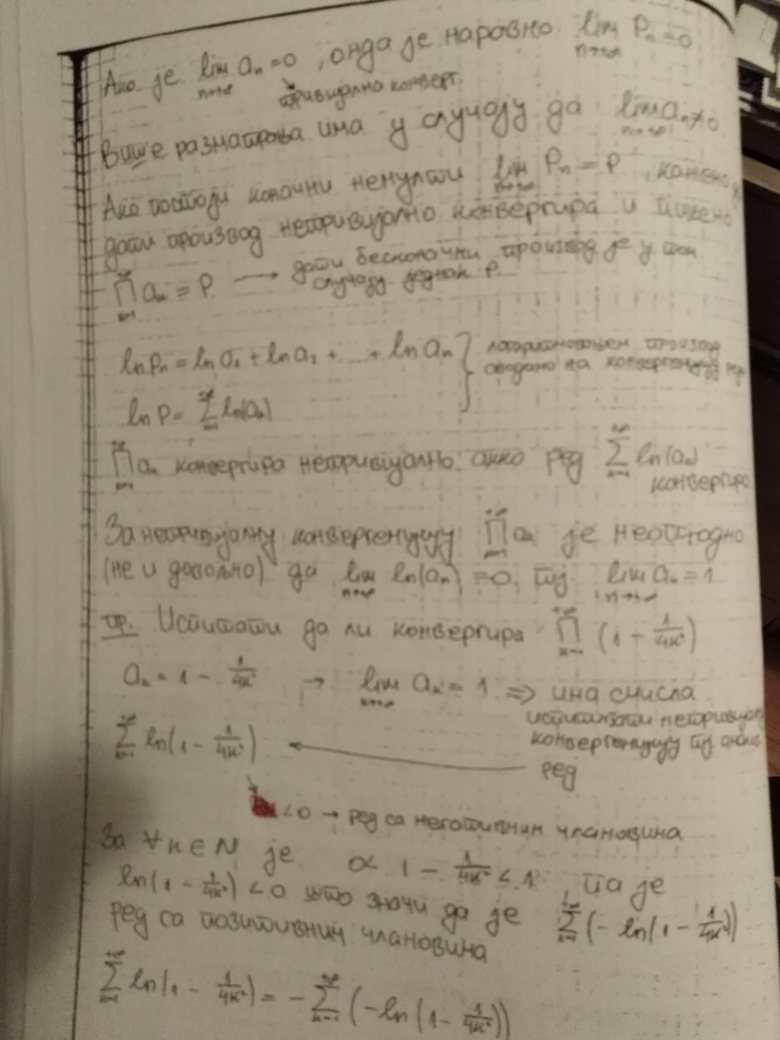 Ако је lim aₙ = 0, онда је наравно lim Pₙ = 0
n→+∞ n→+∞
тривијална конверг.
Више разматрања има у случају да lim aₙ ≠ 0
n→+∞
Ако постоји коначни ненулти lim Pₙ = P, кажемо
n→+∞
дати производ нетривијално конвергира и пишемо
∏ aₙ = P → дати бесконачни производ је у том
случају једнак P
ln Pₙ = ln a₁ + ln a₂ + ... + ln aₙ } логаритмовањем производ
сводимо на конвергенцију реда
ln P = ∑ ln(aₙ)
∏ aₙ конвергира нетривијално акко ред ∑ ln(aₙ)
конвергира
За нетривијалну конвергенцију ∏ aₙ је неопходно
(не и довољно) да lim ln(aₙ) = 0, тј. lim aₙ = 1
n→+∞ n→+∞
пр. Испитати да ли конвергира ∏ (1 - 1/4k²)
aₖ = 1 - 1/4k² → lim aₖ = 1 ⇒ има смисла
испитати нетривијал
конвергенцију тј.
ред
∑ ln(1 - 1/4k²) ←
< 0 → ред са негативним члановима
За ∀k ∈ N је 0 < 1 - 1/4k² < 1, па је
ln(1 - 1/4k²) < 0 што значи да је ∑ (-ln(1 - 1/4k²))
ред са позитивним члановима
∑ ln(1 - 1/4k²) = -∑ (-ln(1 - 1/4k²))